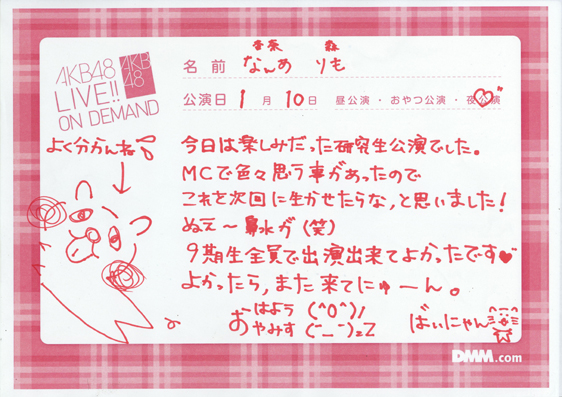 AKB48
LIVE!!
ON DEMAND
AKB
48
名前 なんめ りも
公演日 1月10日 昼公演・おやつ公演・夜公演
よく分かんね
今日は楽しみだった研究生公演でした。
MCで色々思う事があったので
これを次回に生かせたらな、と思いました!
ぬえ〜鼻水が(笑)
9期生全員で出演出来てよかったです♥
よかったら、また来てにゅーん。
おはよう (^O^)/
おやみす (-_-)zZ
ばいにゃん
DMM.com